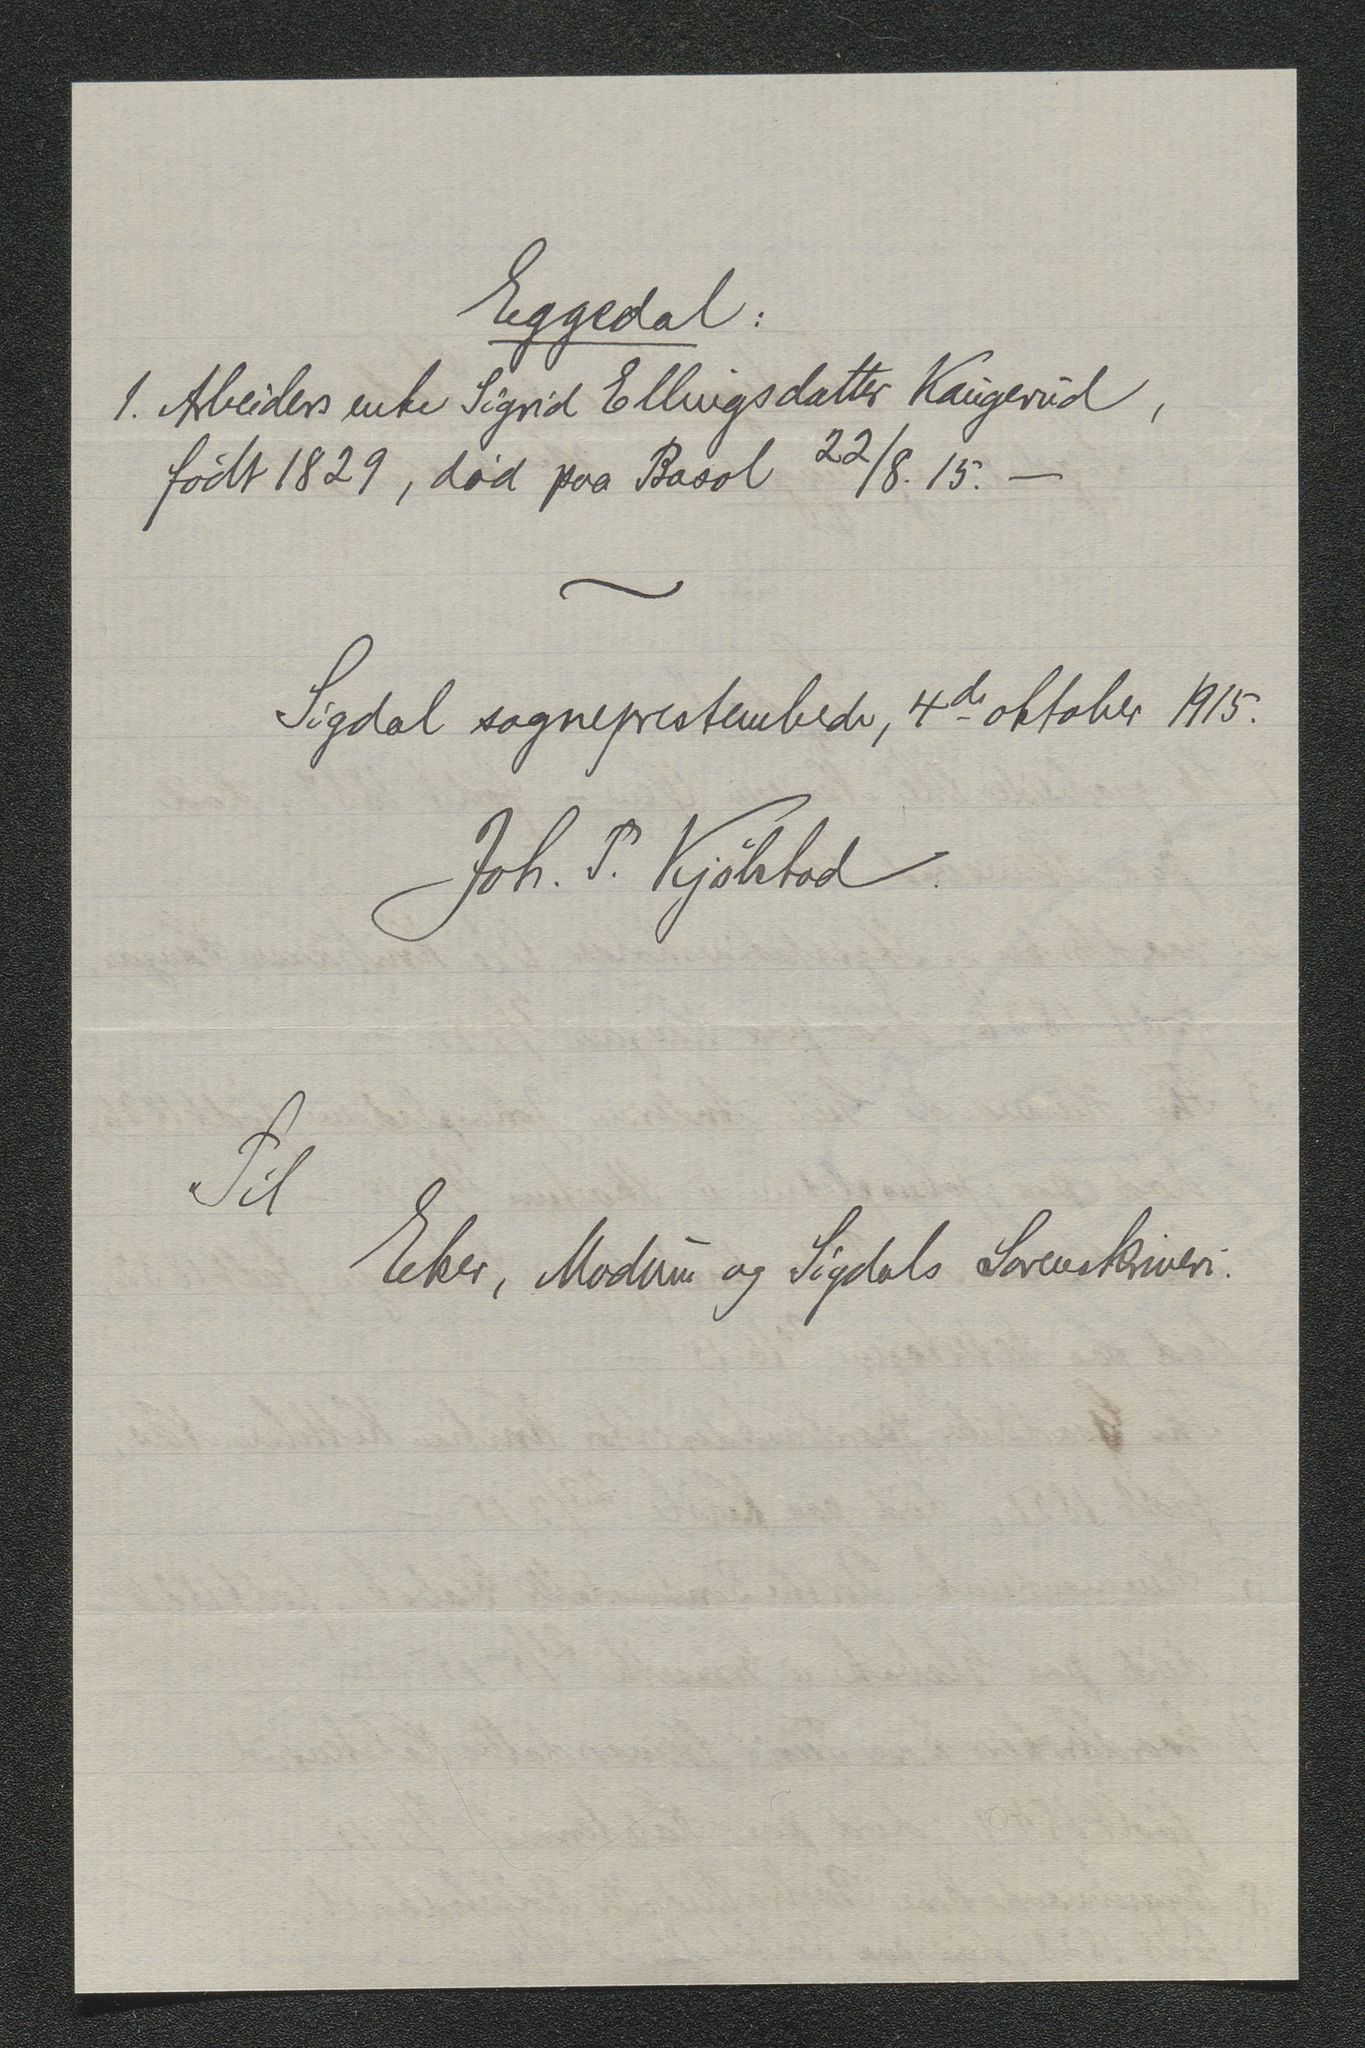 Eggedal:
1. Arbeiders enke Sigrid Ellingsdatter Kaugerud,
født 1829, død paa Basol 22/8. 15. —
Sigdal sogneprestembede, 4de oktober 1915.
Joh. P. Kjølstad.
Til
Eker, Modum og Sigdals Sorenskriveri.